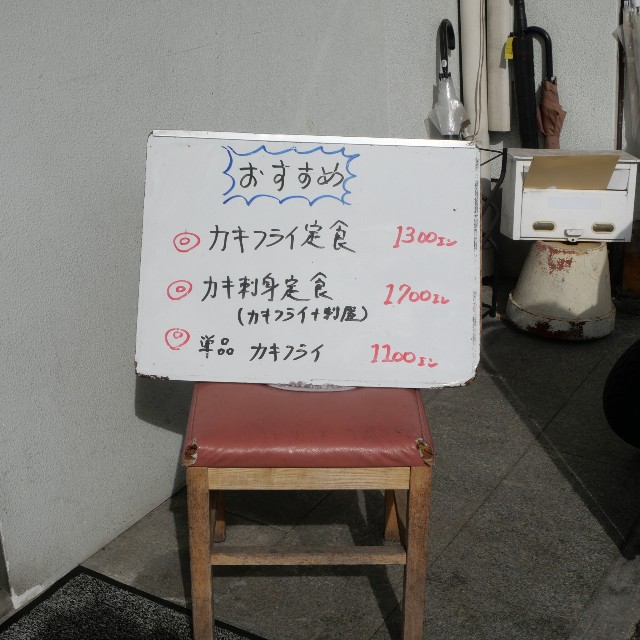 おすすめ
◎ カキフライ定食 1300エン
◎ カキ刺身定食 1700エン
(カキフライ+刺屋)
◎ 単品 カキフライ 1100エン